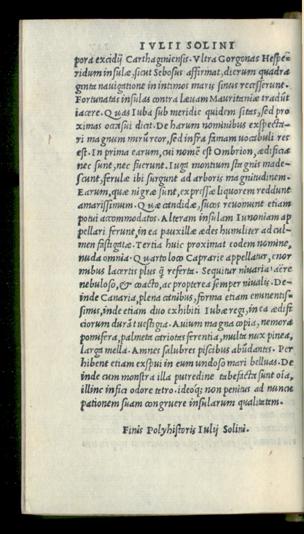 IVLII SOLINI
pora excidij Carthaginiensis. Vltra Gorgonas Hespe
ridum insulæ, sicut Sebosus affirmat, dierum quadra
ginta nauigatione in intimos maris sinus recesserunt.
Fortunatas insulas contra læuam Mauritaniæ tradūt
iacere. Quas Iuba sub meridie quidem sitas, sed pro
ximas occasui dicit. De harum nominibus expecta-
ri magnum miror, sed infra famam uocabuli res
est. In prima earum, cui nomē est Ombrion, ædificia
nec sunt, nec fuerunt. Iuga montium stagnis made-
scunt. ferulæ ibi surgunt ad arboris magnitudinem.
Earum, quæ nigræ sunt, expressæ liquorem reddunt
amarissimum. Quæ cādidæ, sucos reuomunt etiam
potui accommodatos. Alteram insulam Iunoniam ap
pellari ferunt, in ea pauxillæ ædes humiliter ad cul-
men fastigatæ. Tertia huic proximat eodem nomine,
nuda omnia. Quarto loco Caprariæ appellatur, enor
mibus lacertis plus q̄ referta. Sequitur niuaria aere
nebuloso, & coacto, ac propterea semper niualis. De-
inde Canaria, plena canibus, forma etiam eminentis-
simis, inde etiam duo exhibiti Iubæ regi, in ea ædifi
ciorum durāt uestigia. Auium magna copia, nemora
pomifera, palmeta criotes ferentia, multa nux pinea,
larga mella. Amnes salubres piscibus abūdantes. Per
hibent etiam expui in eum undoso mari belluas. De
inde cum monstra illa putredine tabefacta sunt oīa,
illinc infici odore tetro. ideoq; non penitus ad nuncu
pationem suam congruere insularum qualitatem.
Finis Polyhistoris Iulij Solini.